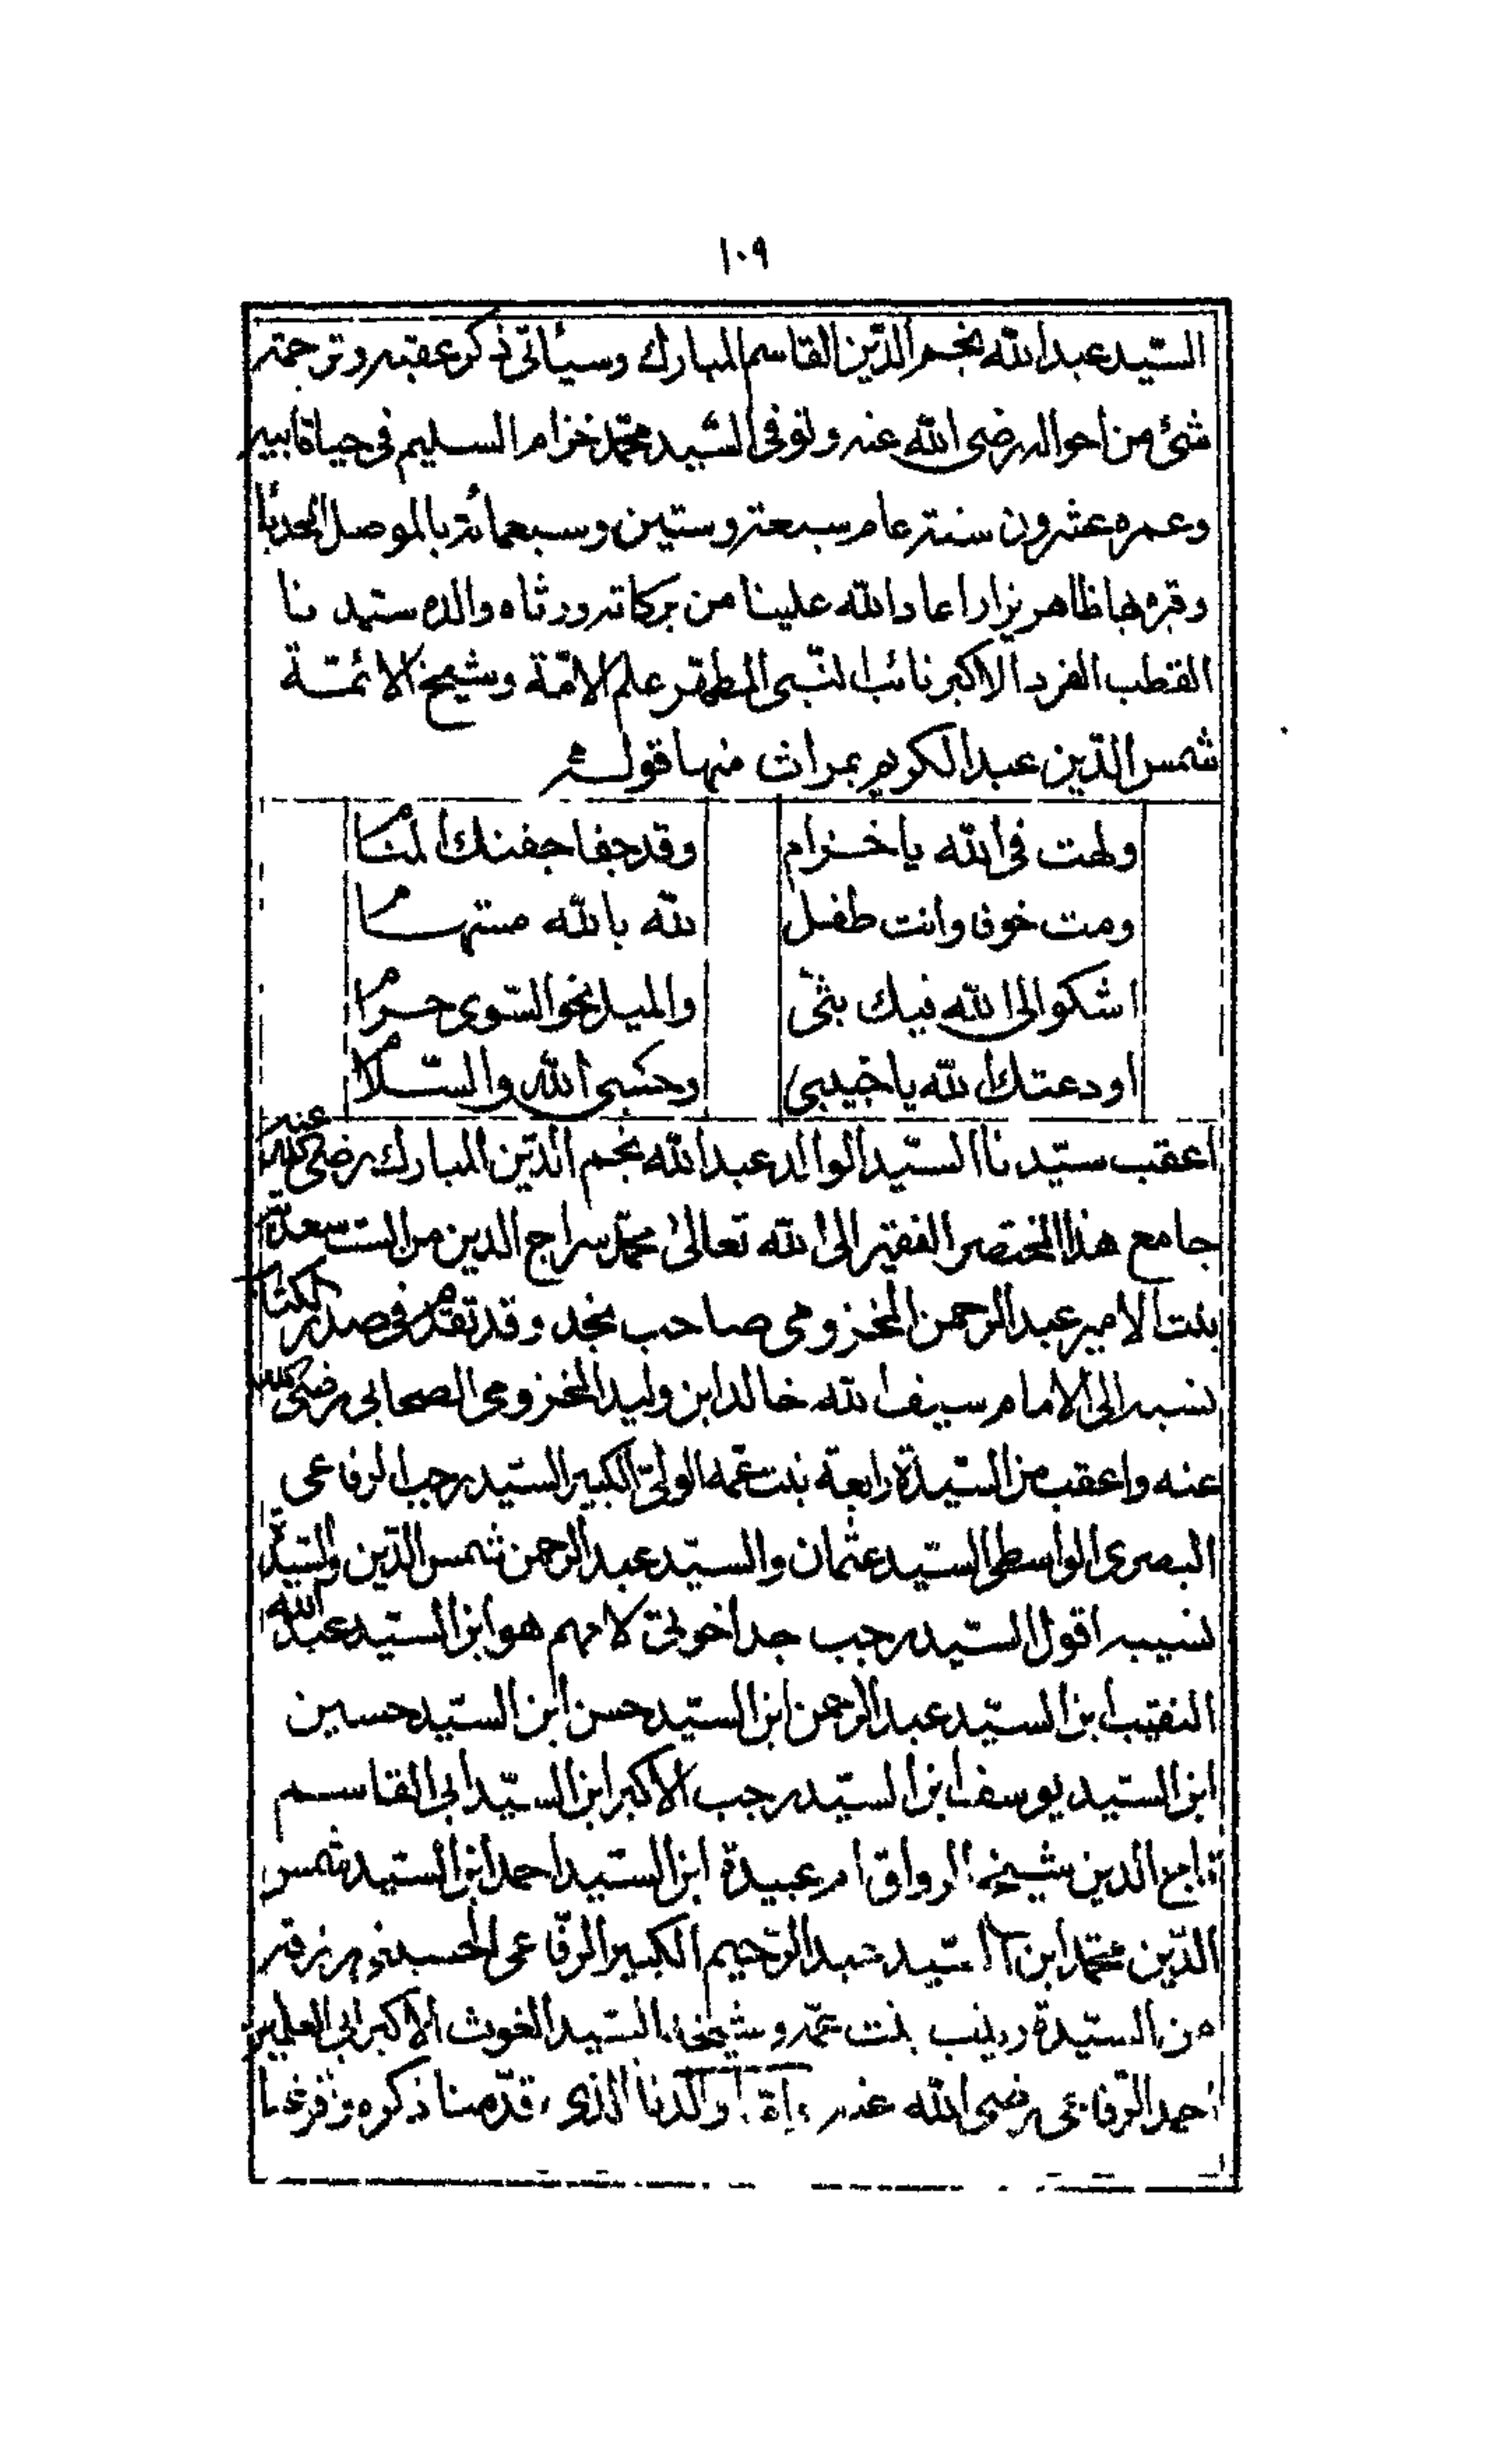 ١٠٩
السّيد عبدالله نجم الدّين القاسم المبارك وسيأتى ذكر عقبه وترجمة
شئ من احواله رضى الله عنه وتوفى السّيد محمّد خزام السليم فى حياة ابيه
وعمره عشرون سنة عام سبعة وستين وسبعمائة بالموصل الحدبآ
وقبره بها ظاهر يزار اعاد الله علينا من بركاته ورثاه والده سيّدنا
القطب الفرد الاكبر نائب النّبى المطهّر علم الامّة وشيخ الائمّة
شمس الدّين عبد الكريم بمراث منها قوله
ولهت فى الله يا خزام وقد جفا جفنك المنام
ومت خوفا وانت طفل لله بالله مستهام
اشكو الى الله فيك بثّى والميل نحو السّوى حرام
اودعتك لله يا حبيبى وحسبى الله والسّلام
اعقب سيّدنا السّيد الوالد عبدالله نجم الدّين المبارك رضى الله عنه
جامع هذا المختصر الفقير الى الله تعالى محمّد سراج الدين من الست سعدية
بنت الامير عبد الرحمن المخزومى صاحب نجد وقد تقدّم فى صدر الكتاب
نسبه الى الامام سيف الله خالد ابن وليد المخزومى الصحابى رضى الله
عنه واعقب من السّيدة رابعة بنت عمّه الولىّ الكبير السّيد رجب الرفاعى
البصرى الواسطى السّيد عثمان والسّيد عبد الرحمن شمس الدّين والسّيدة
نسيبه اقول السّيد رجب جد اخوتى لامهم هو ابن السّيد عبد الله
النقيب ابن السّيد عبد الرحمن ابن السّيد حسن ابن السّيد حسين
ابن السّيد يوسف ابن السّيد رجب الاكبر ابن السّيد ابى القاسم
تاج الدين شيخ الرواق ام عبيدة ابن السّيد احمد ابن السّيد شمس
الدّين محمّد ابن السّيد عبد الرّحيم الكبير الرّفاعى الحسينى رزقه
من السّيدة زينب بنت عمّه وشيخنا السّيد الغوث الاكبر ابى العلمين
احمد الرّفاعى رضى الله عنه وامّا والدنا الذى قدّمنا ذكره